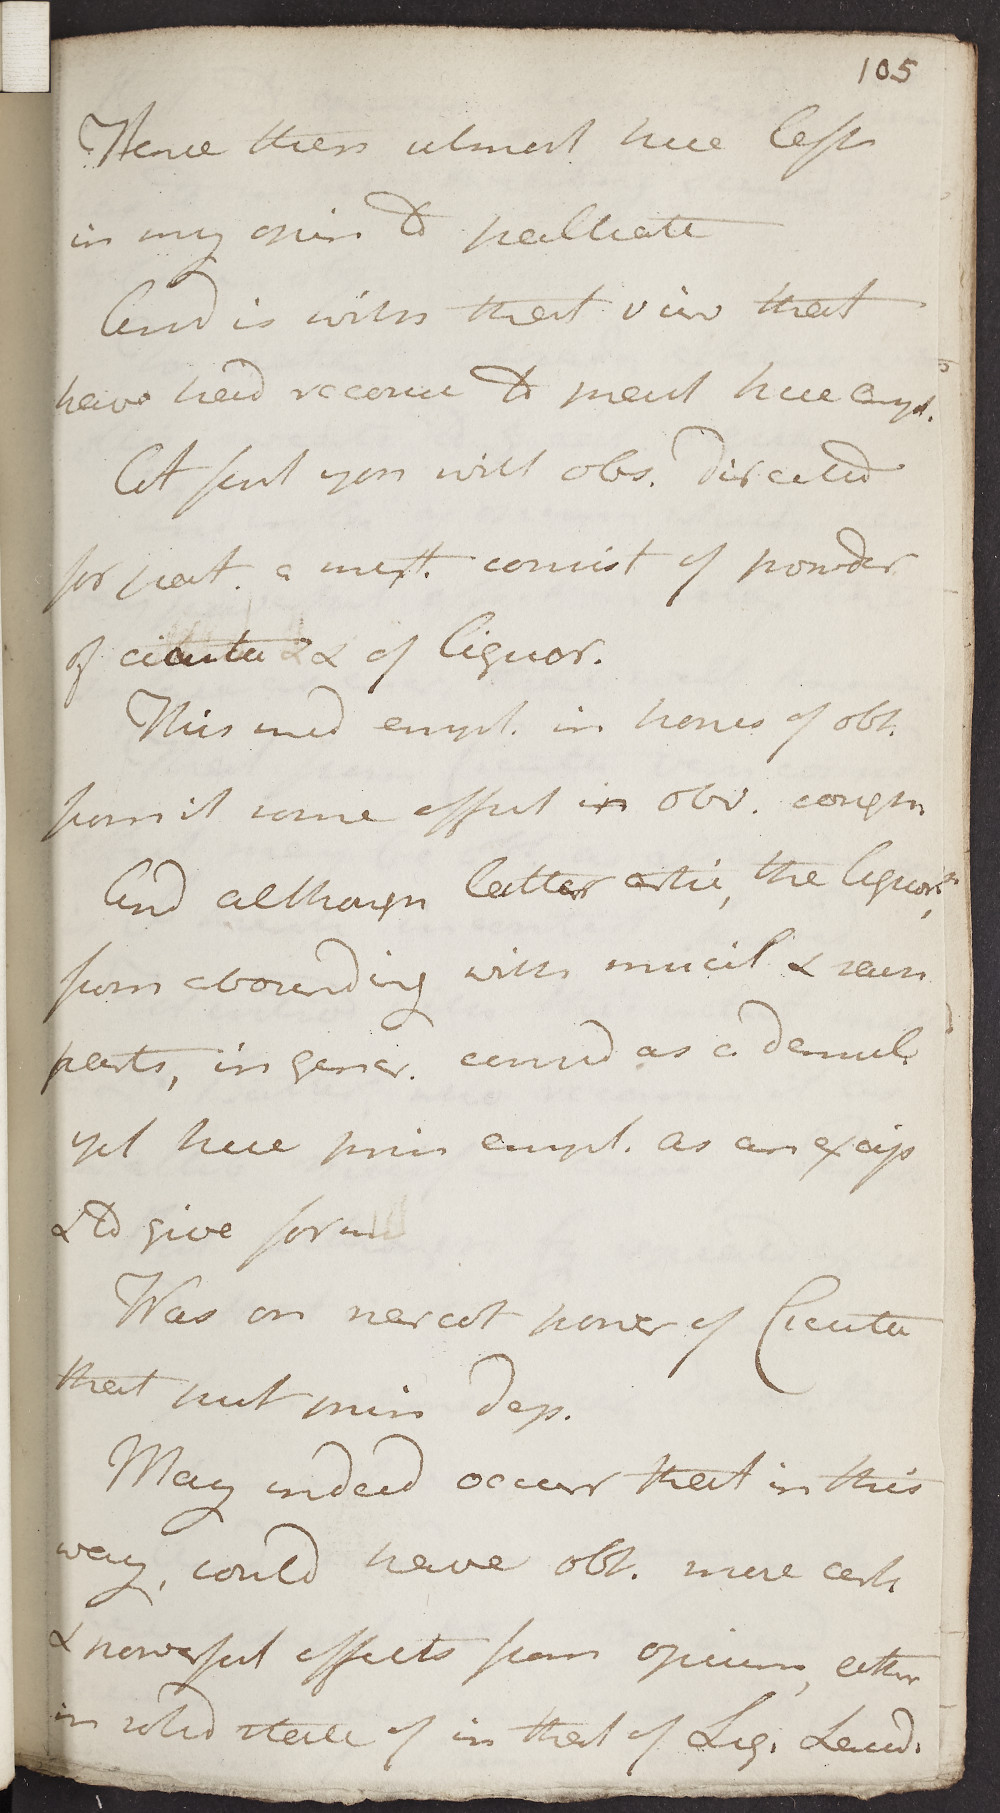 105
Hence then almost here left
in my opin to palliate
And is with that view that
have had recour to pract here empl.
At first you will obs. directed
for pat. a mixt. consist of powder
of cicuta & of liquor.
This med empl. in hopes of obt.
from it some effect in obv. cough
And although latter artic, the liquor,
from abounding with mucil &
parts, in gener. consid as a demulc
yet here prin empl. as an excip
& to give form
Was on narcot power of Cicuta
that put prin dep.
May indeed occurr that in this
way, could have obt. more cert
& powerful effects from opium, either
in solid state or in that of Liq. Laud.